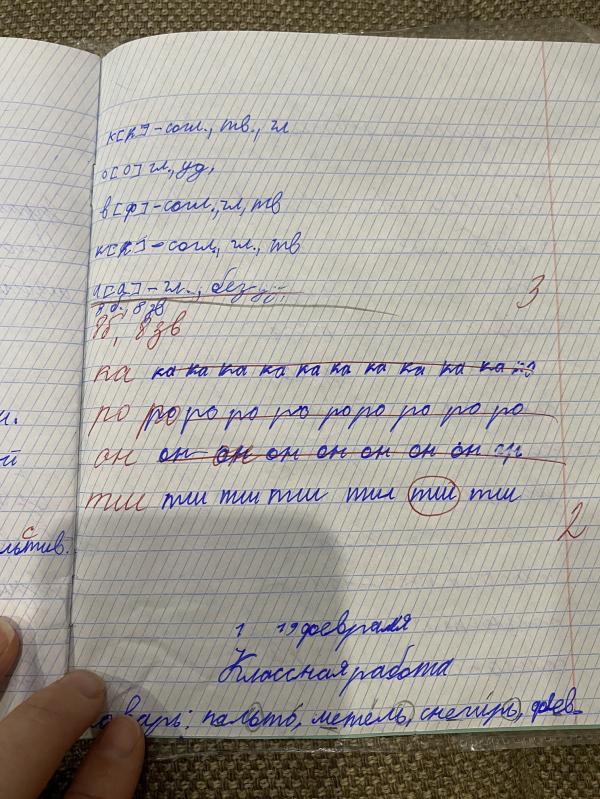 к[к]-согл., тв., гл
о[о] гл., уд.
в[ф]-согл., гл, тв
к[к]-согл., гл., тв
а[а]-гл., без уд.
3
8б, 8зв
8б, 8зв
ка ка ка ка ка ка ка ка ка ка ка
ро ро ро ро ро ро ро ро ро ро
он он он он он он он он он
тш тш тш тш тш тш тш
2
и.
ой
с
льтив.
1 19 февраля
Классная работа
оварь: пальто, метель, снегирь, фев-